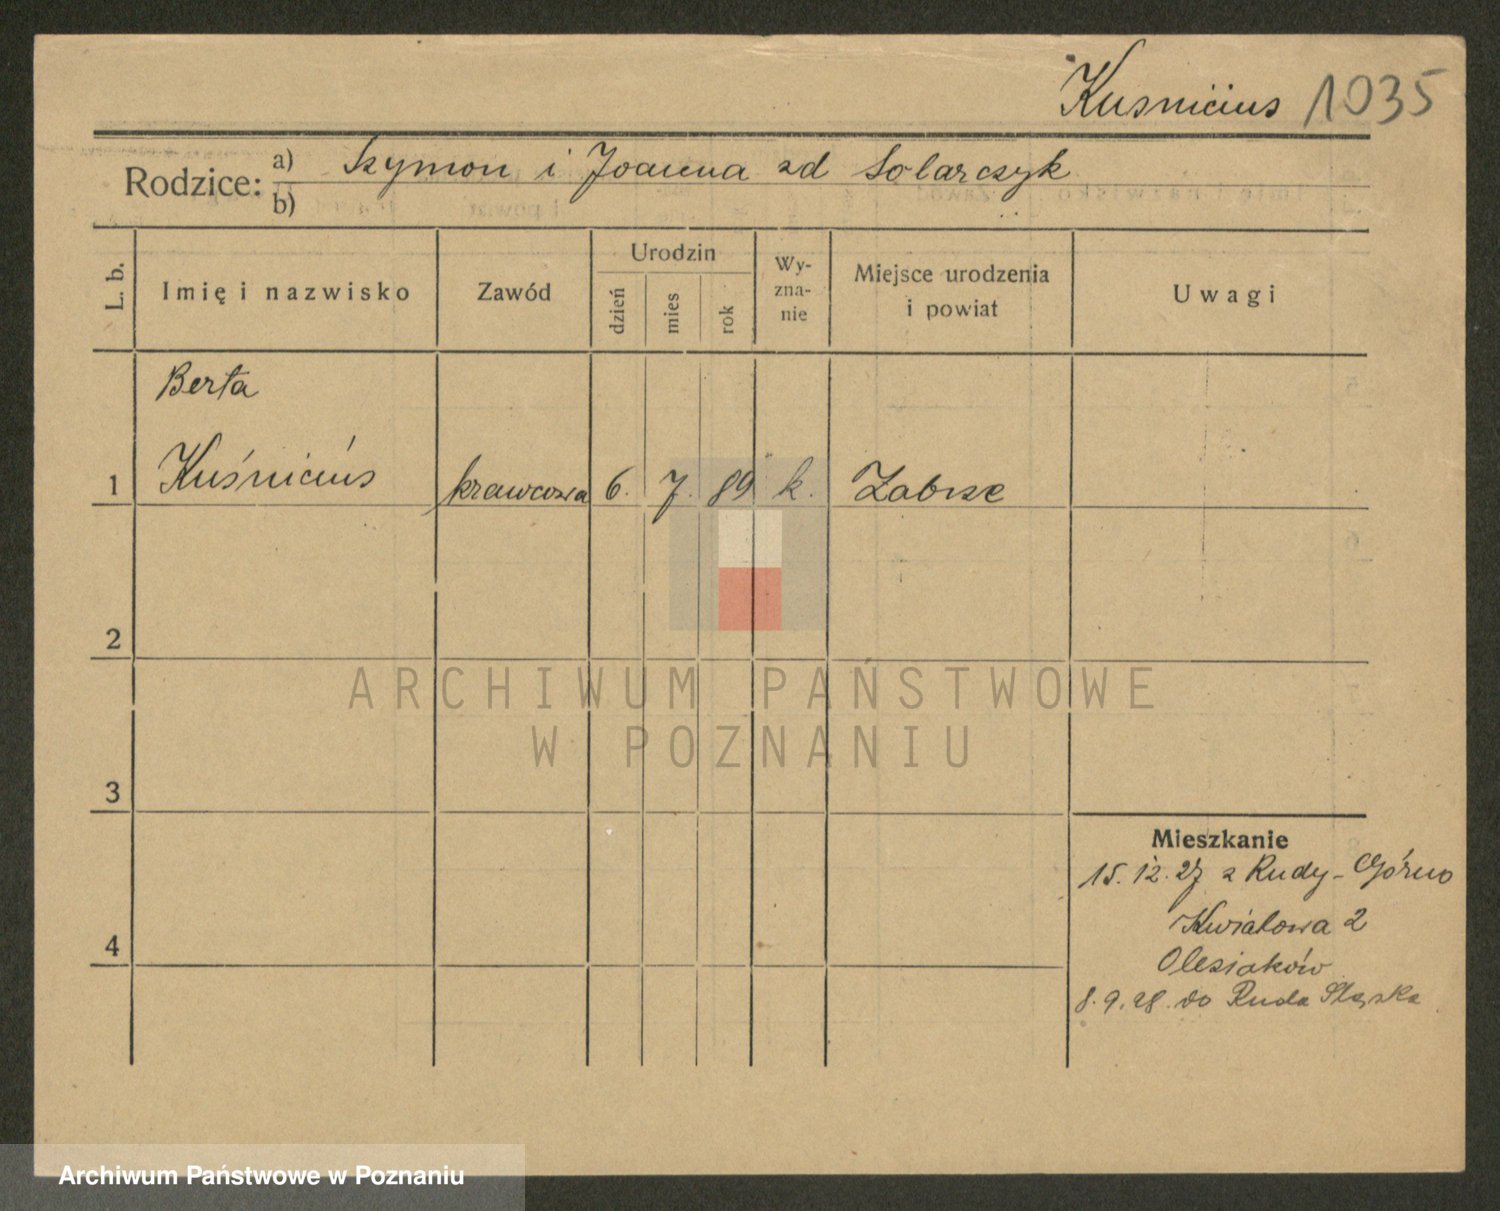 Kusnicius 1035
Rodzice: a) Szymon i Joanna zd Solarczyk
b)
L. b.
Imię i nazwisko
Zawód
Urodzin
dzień
mies
rok
Wy-
zna-
nie
Miejsce urodzenia
i powiat
Uwagi
Berta
1 Kuśnicius krawcowa 6. 7. 89 k. Zabrze
2
ARCHIWUM PAŃSTWOWE
W POZNANIU
3
Mieszkanie
15.12.27 z Rudy-Górno
Kwiatowa 2
4
Olesiaków
8.9.28. do Ruda Śląska
Archiwum Państwowe w Poznaniu